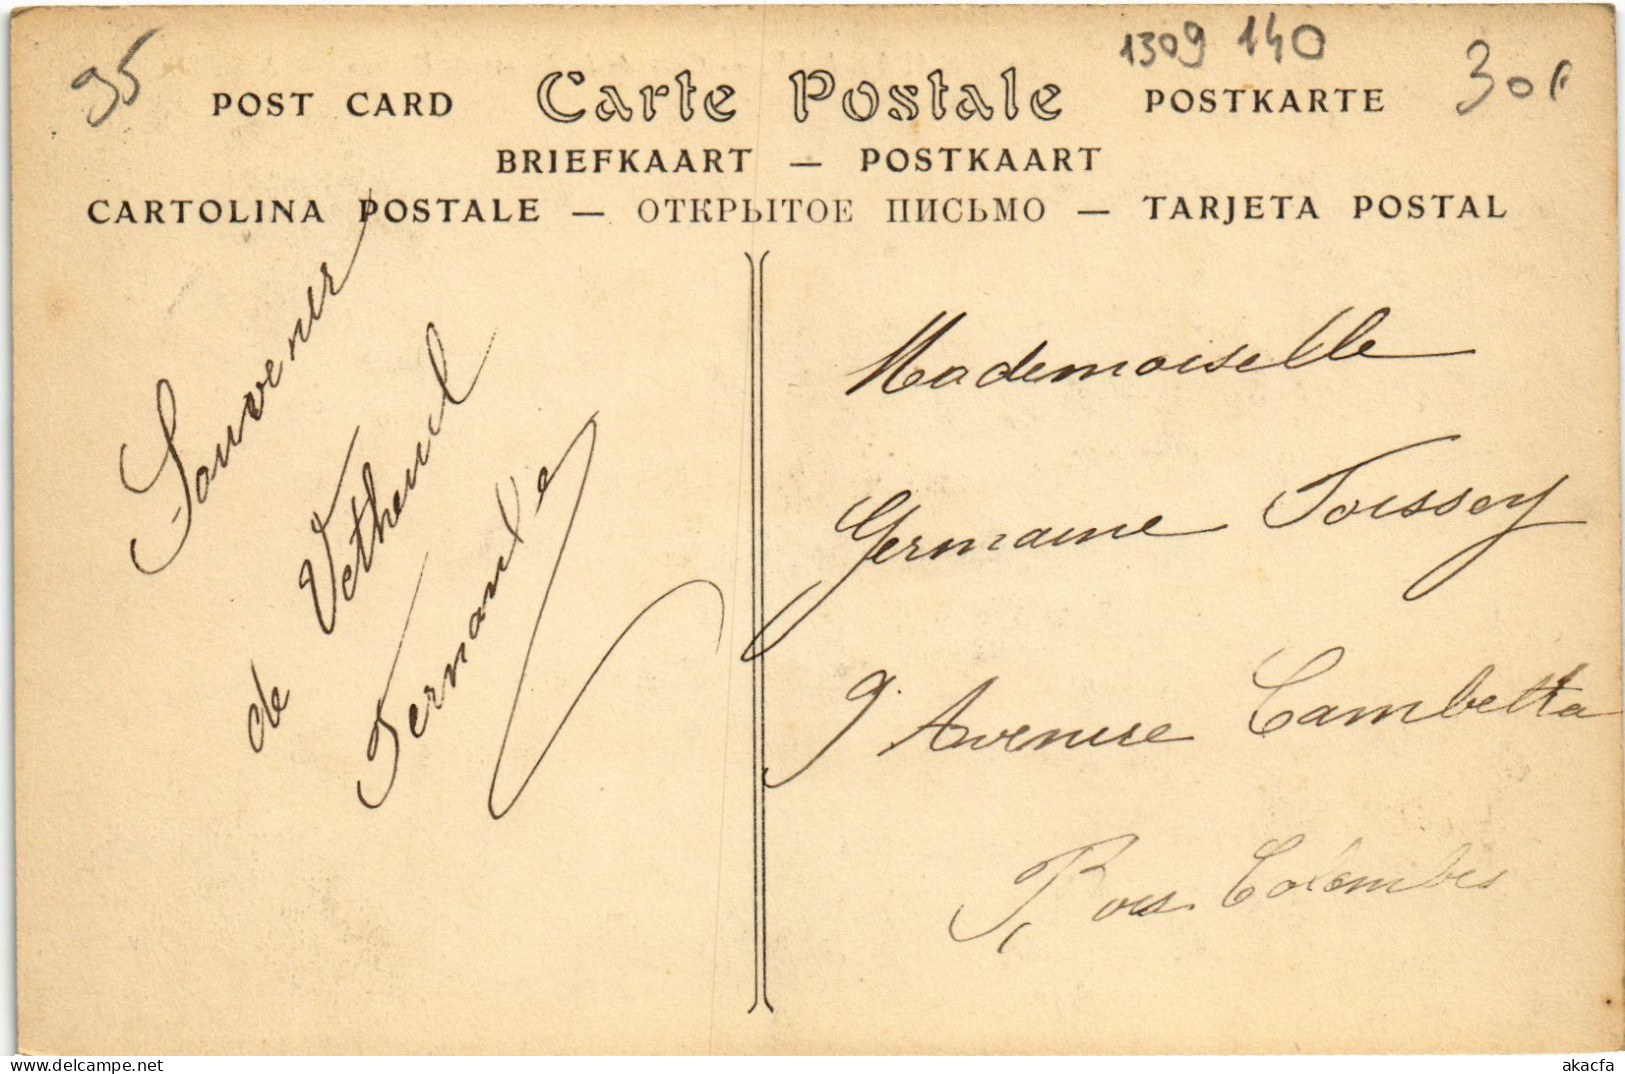 95
1309 140
30f
POST CARD Carte Postale POSTKARTE
BRIEFKAART — POSTKAART
CARTOLINA POSTALE — ОТКРЫТОЕ ПИСЬМО — TARJETA POSTAL
Souvenir
de Vetheuil
Fernande
Mademoiselle
Germaine Toissey
9 Avenue Gambetta
Bois Colombes
akacfa